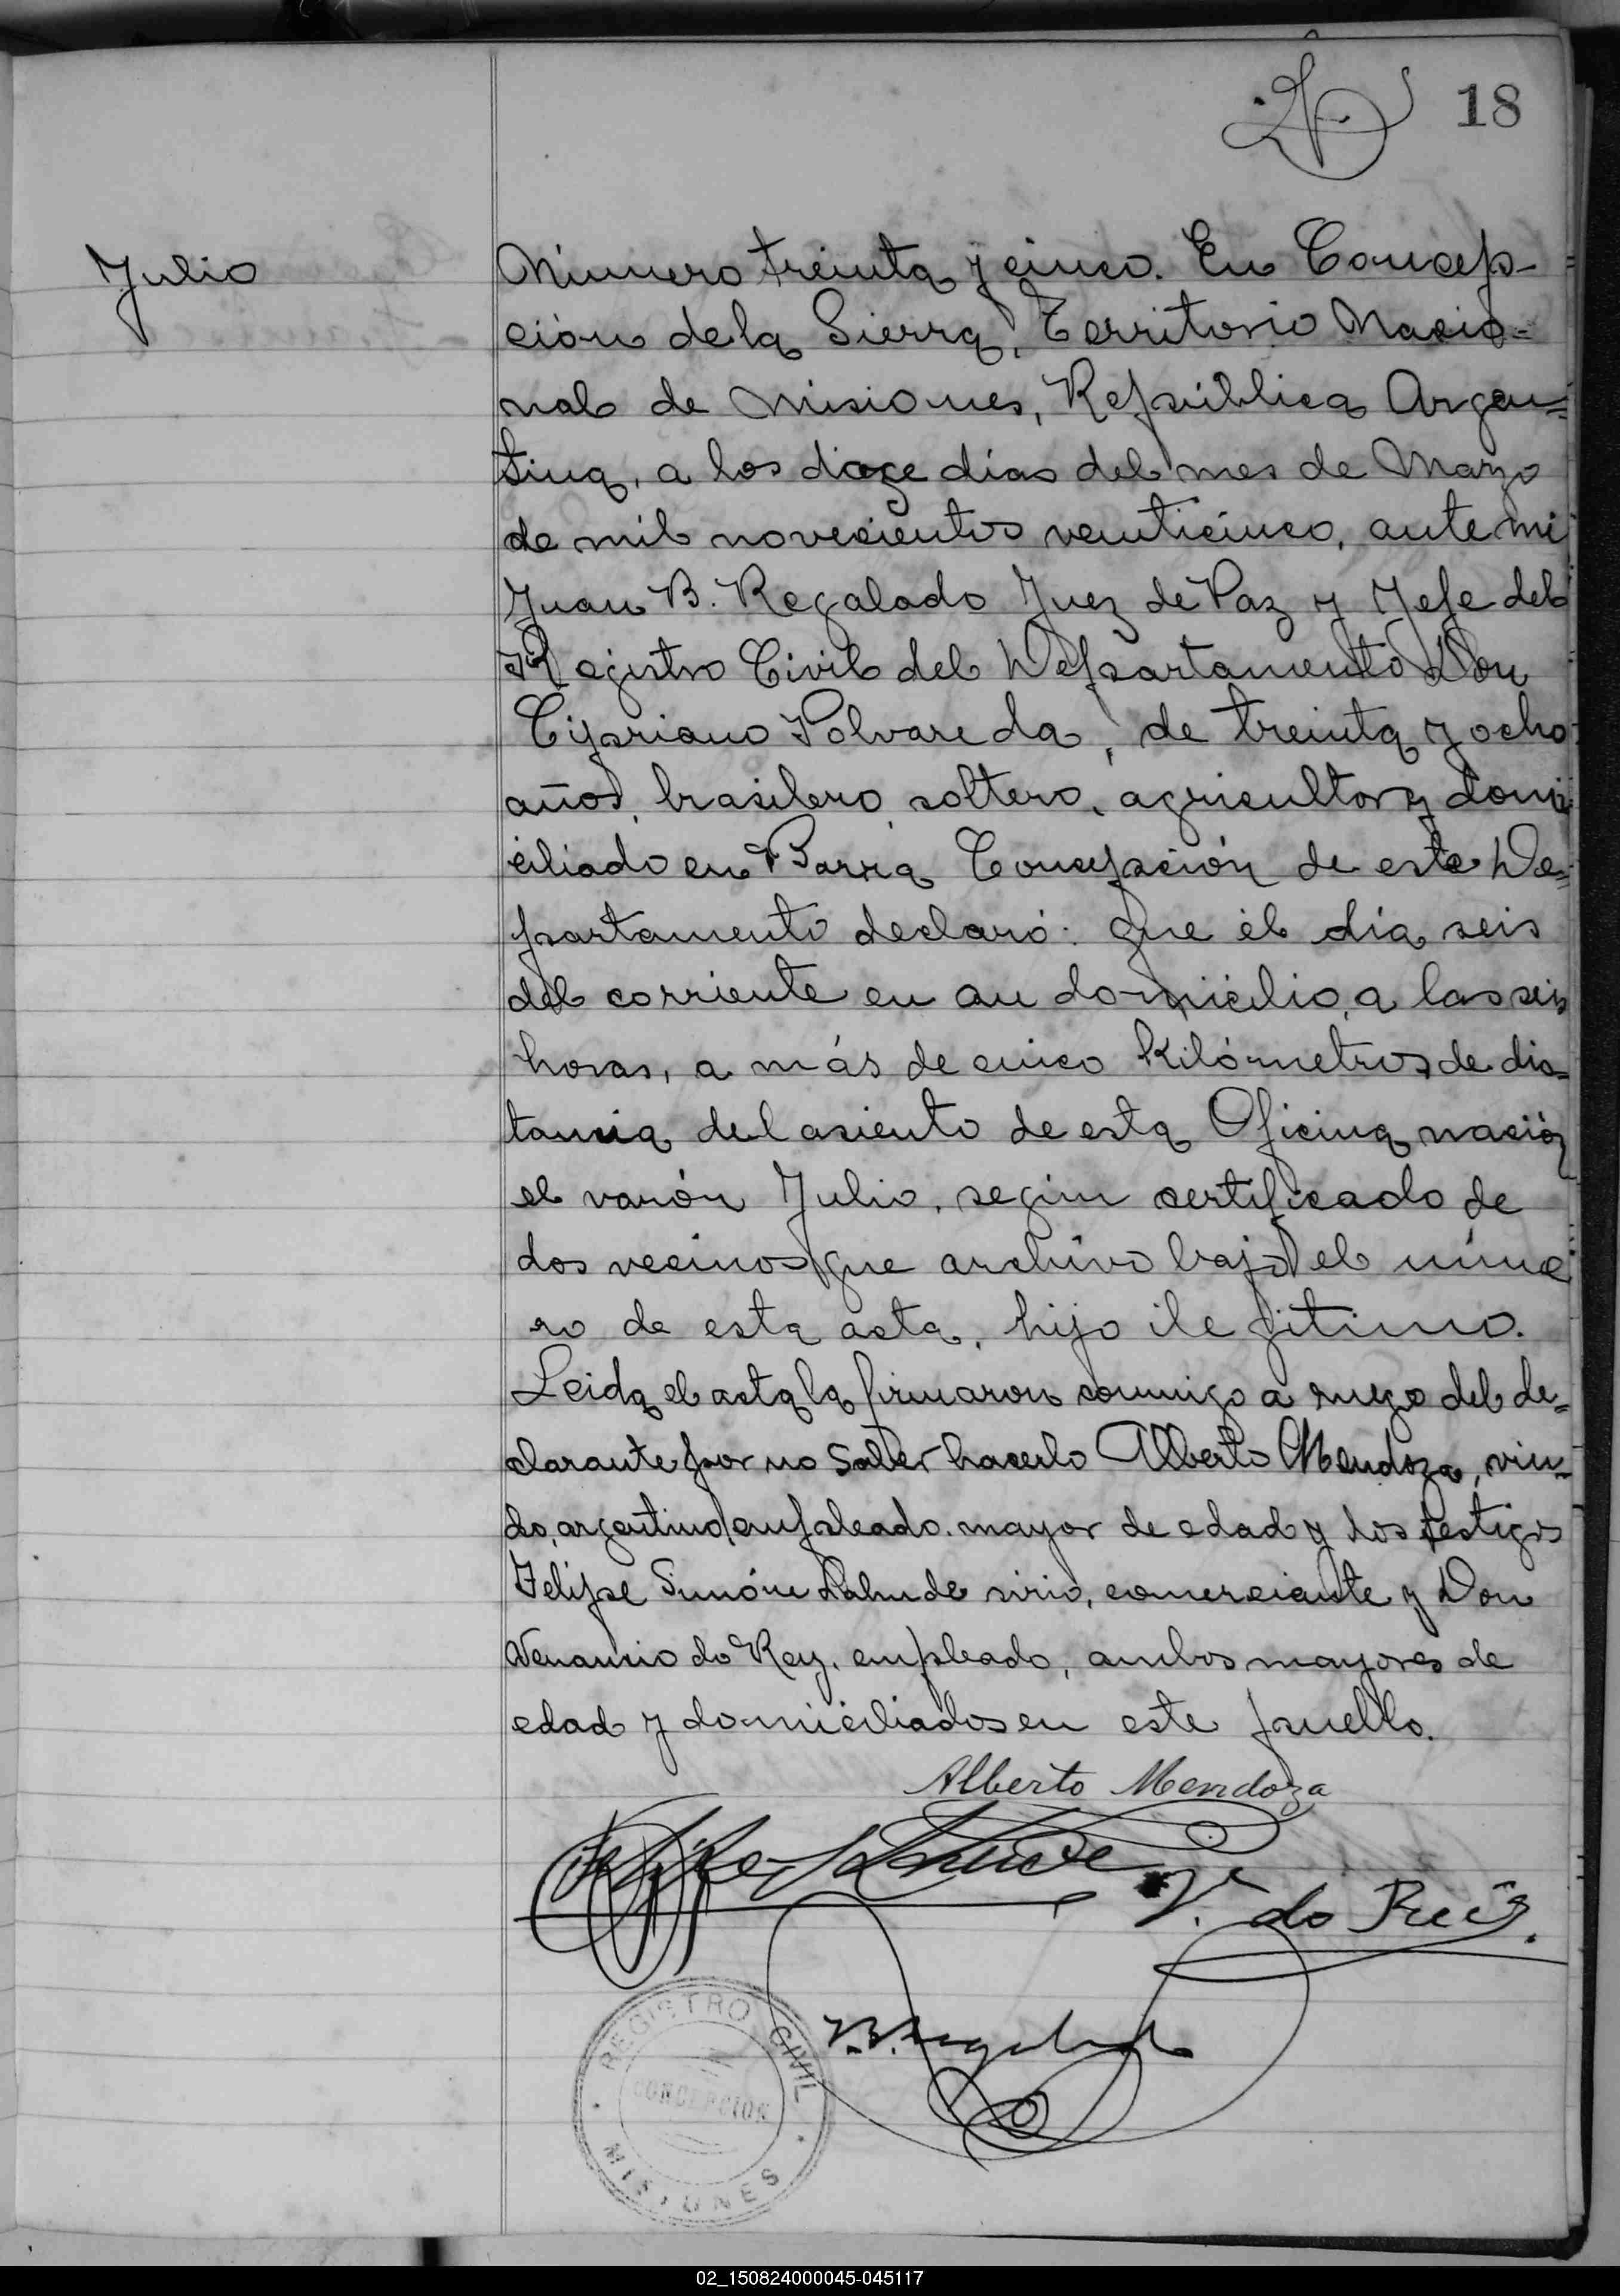 18
Julio
Número treinta y cinco. En Concep-
ción de la Sierra, Territorio Nacio-
nal de Misiones, República Argen-
tina, a los días del mes de Marzo
de mil novecientos veinticinco, ante mi
Juan B. Regalado Juez de Paz y Jefe del
Registro Civil del Departamento Don
Cipriano Polvareda, de treinta y ocho
años, brasilero, soltero, agricultor y domi
ciliado en Barra Concepción de este De-
partamento declaró: que el día seis
del corriente en su domicilio, a las seis
horas, a más de cinco Kilómetros de dis-
tancia del asiento de esta Oficina nació
el varón Julio, según certificado de
dos vecinos que archivo bajo el núme
ro de esta acta, hijo ilegitimo.
Leida el acta la firmaron conmigo a ruego del de-
clarante por no saber hacerlo Alberto Mendoza, viu-
do, argentino, empleado, mayor de edad y los testigos
Felipe sirio, comerciante y Don
Venancio do Rey, empleado, ambos mayores de
edad y domiciliados en este pueblo.
Alberto Mendoza
V. do
REGISTRO CIVIL
CONCEPCION
MISIONES
02_150824000045-045117